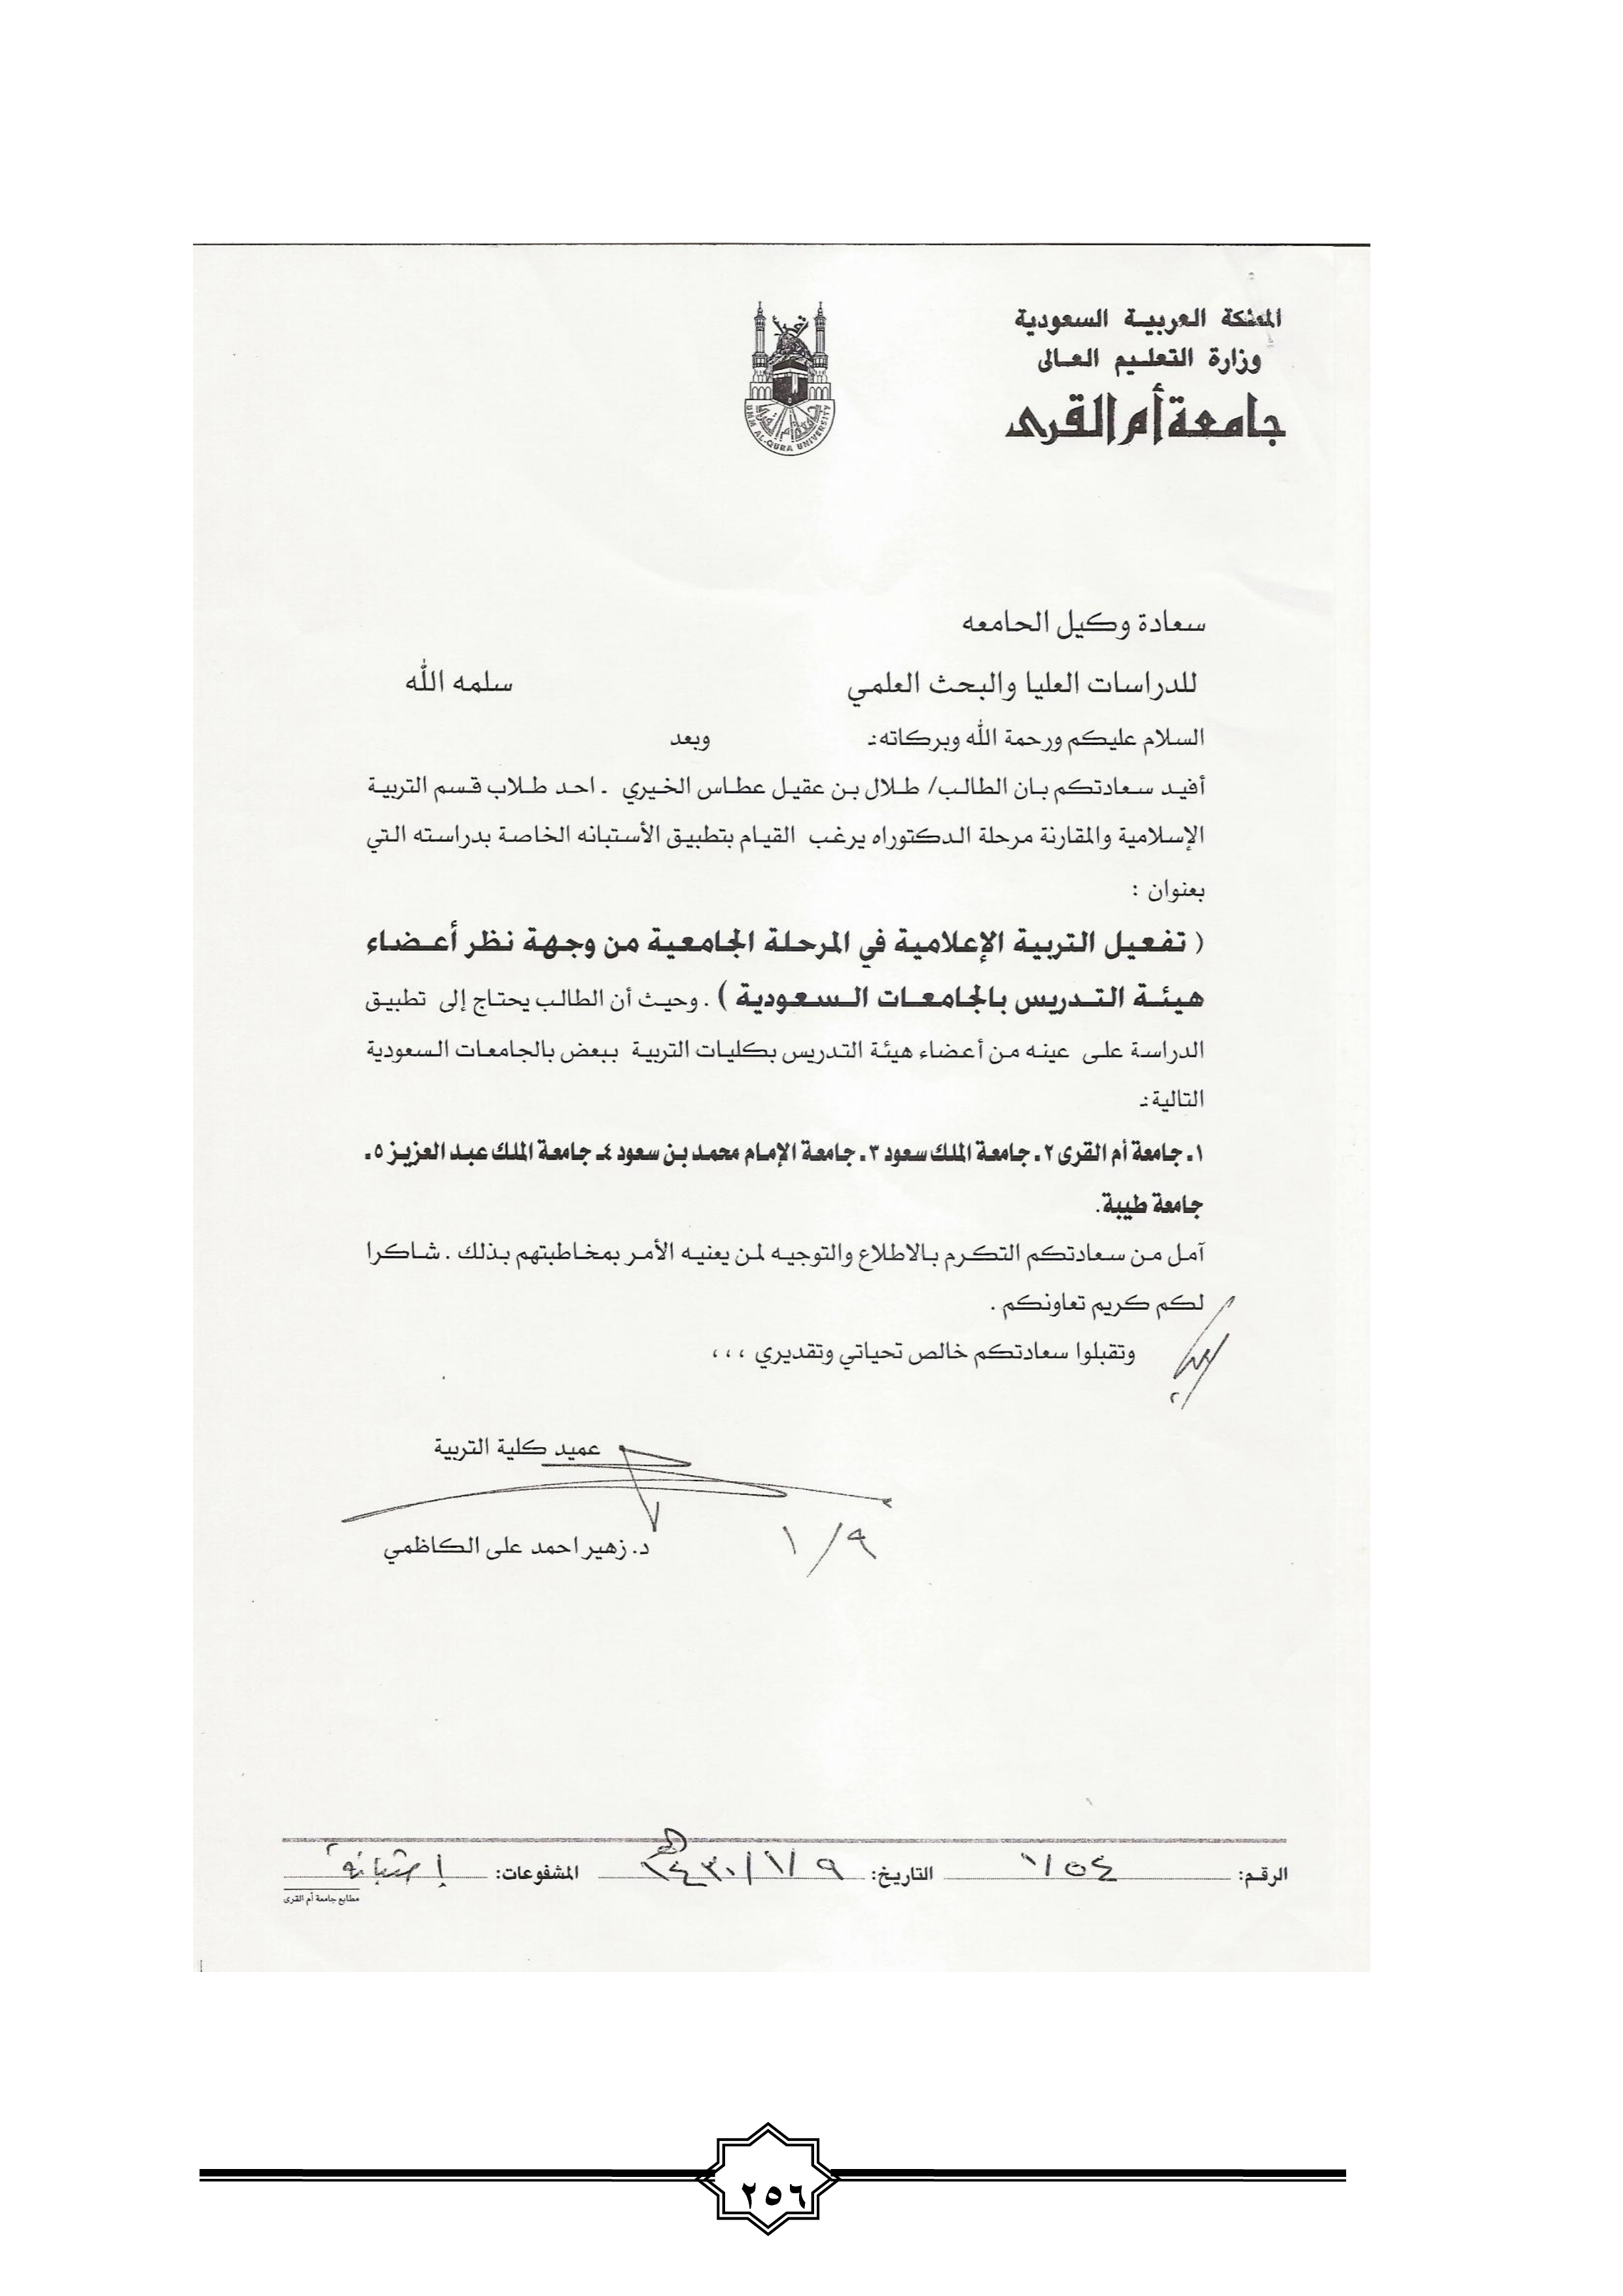 المملكة العربية السعودية
وزارة التعليم العالى
جامعة أم القرى
UMM AL-QURA UNIVERSITY
سعادة وكيل الحامعه
للدراسات العليا والبحث العلمي سلمه الله
السلام عليكم ورحمة الله وبركاته:ـ وبعد
أفيد سعادتكم بان الطالب/ طلال بن عقيل عطاس الخيري . احد طلاب قسم التربية
الإسلامية والمقارنة مرحلة الدكتوراه يرغب القيام بتطبيق الأستبانه الخاصة بدراسته التي
بعنوان :
( تفعيل التربية الإعلامية في المرحلة الجامعية من وجهة نظر أعضاء
هيئة التدريس بالجامعات السعودية ) . وحيث أن الطالب يحتاج إلى تطبيق
الدراسة على عينه من أعضاء هيئة التدريس بكليات التربية ببعض بالجامعات السعودية
التالية:ـ
١. جامعة أم القرى ٢. جامعة الملك سعود ٣. جامعة الإمام محمد بن سعود ٤ـ جامعة الملك عبد العزيز ٥.
جامعة طيبة.
آمل من سعادتكم التكرم بالاطلاع والتوجيه لمن يعنيه الأمر بمخاطبتهم بذلك . شاكرا
لكم كريم تعاونكم .
وتقبلوا سعادتكم خالص تحياتي وتقديري ، ، ،
عميد كلية التربية
١/٩
د. زهير احمد على الكاظمي
الرقم: ١/٥٤ التاريخ: ١٤٣٠/١/٩ هـ المشفوعات: إستبانة
مطابع جامعة أم القرى
٢٥٦